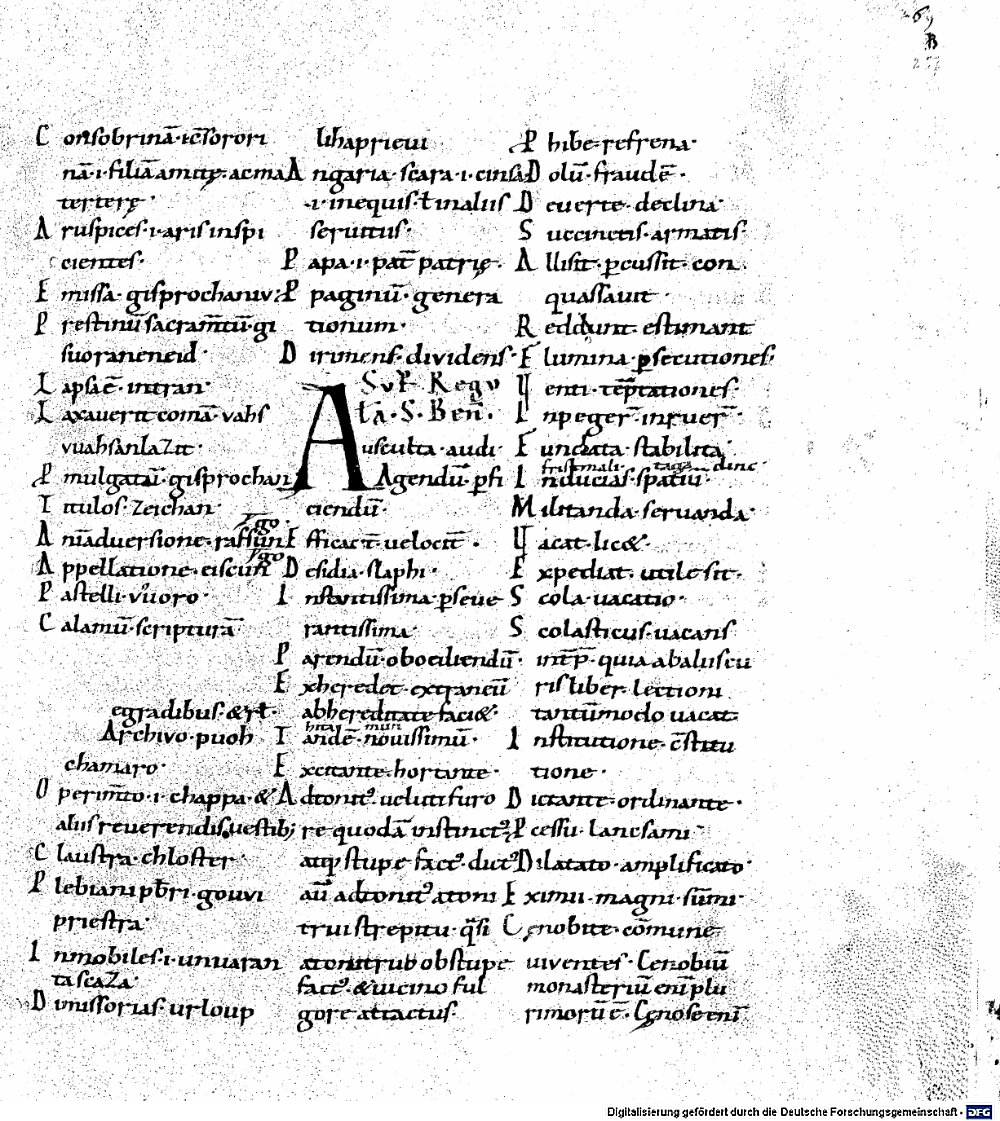 Consobrinā·ic̄sorori
nā·i·filiā amitę·ac ma
terterę·
Aruspices·i·aris inspi
cientes·
Emissa·gisprochanuv
Prestinū sacram̄tū·gi
suoraneneid·
Lapsa ē·intran·
Laxauerit comā·vahs
vuahsanlazit·
P̱mulgatā·gisprochan
Titulos·zeichan·
Anīaduersione·rafsun
ꝩgo·
Appellatione·eiscun
ꝩgo
Pastelli·vuoro·
Calamū·scripturā
egradibus·&
Archivo·puoh
chamaro·
Operim̄to·i·chappa·&
aliis reuerendis uestib;
Claustra·chloster·
Plebiani pb̄ri·gouvi
priestra·
Inmobiles·i·unuaran
ta scaza·
Dimissorias·urloup
lihaprieui
Angaria·scara·i·
·i·inequis·t̄ inaliis
seruitus·
Papa·i·pat̄ patrię·
Ppaginū·genera
tionum·
Dirimens·dividens·
Sup̄ Regu
lā·S·Ben̄·
Ausculta·audi·
Agendū·ꝑfi
ciendū·
Efficacit̄·uelocit̄·
Desidia·slaphi·
Instantissima·ꝑseue
rantissima·
Parendū·oboediendū·
Exheredet·extraneū
abhereditate faci&·
Tandē·nouissimū·
Excitante·hortante·
Adtonit᷒·ueluti furo
re quodā instinct᷒·
atqꝫ stupefact᷒·dict᷒
aū adtonit᷒ atoni
trui strepitu·q̄si
atonitrub obstupe
fact᷒·&uicino ful
gore attactus·
P̱hibe·refrena·
Dolū·fraudē·
Deuerte·declina·
Succinctis·armatis·
Allisit·ꝑcussit·con
quassauit·
Reddunt·estimant
Flumina·ꝑsecutiones·
Uenti·tēptationes·
Inpeger̄·inruer̄·
Fundata·stabilita·
fristmali· taga dinc
Inducias·spatiū·
Militanda·seruanda·
Uacat·lic&·
Expediat·utile sit·
Scola·uacatio·
Scolasticus·uacans
int̄p̄·quia abaliis cu
ris liber·lectioni
tantūmodo uacat
Institutione·c̄stitu
tione·
Dictante·ordinante·
P̱cessu·lancsami·
Dilatato·amplificato·
Eximii·magni·sūmi·
Cęnobite·cōmune
uiventes·Cenobiū
monasteriū enī plu
rimorū ē·Cęnose enī
Digitalisierung gefördert durch die Deutsche Forschungsgemeinschaft · DFG